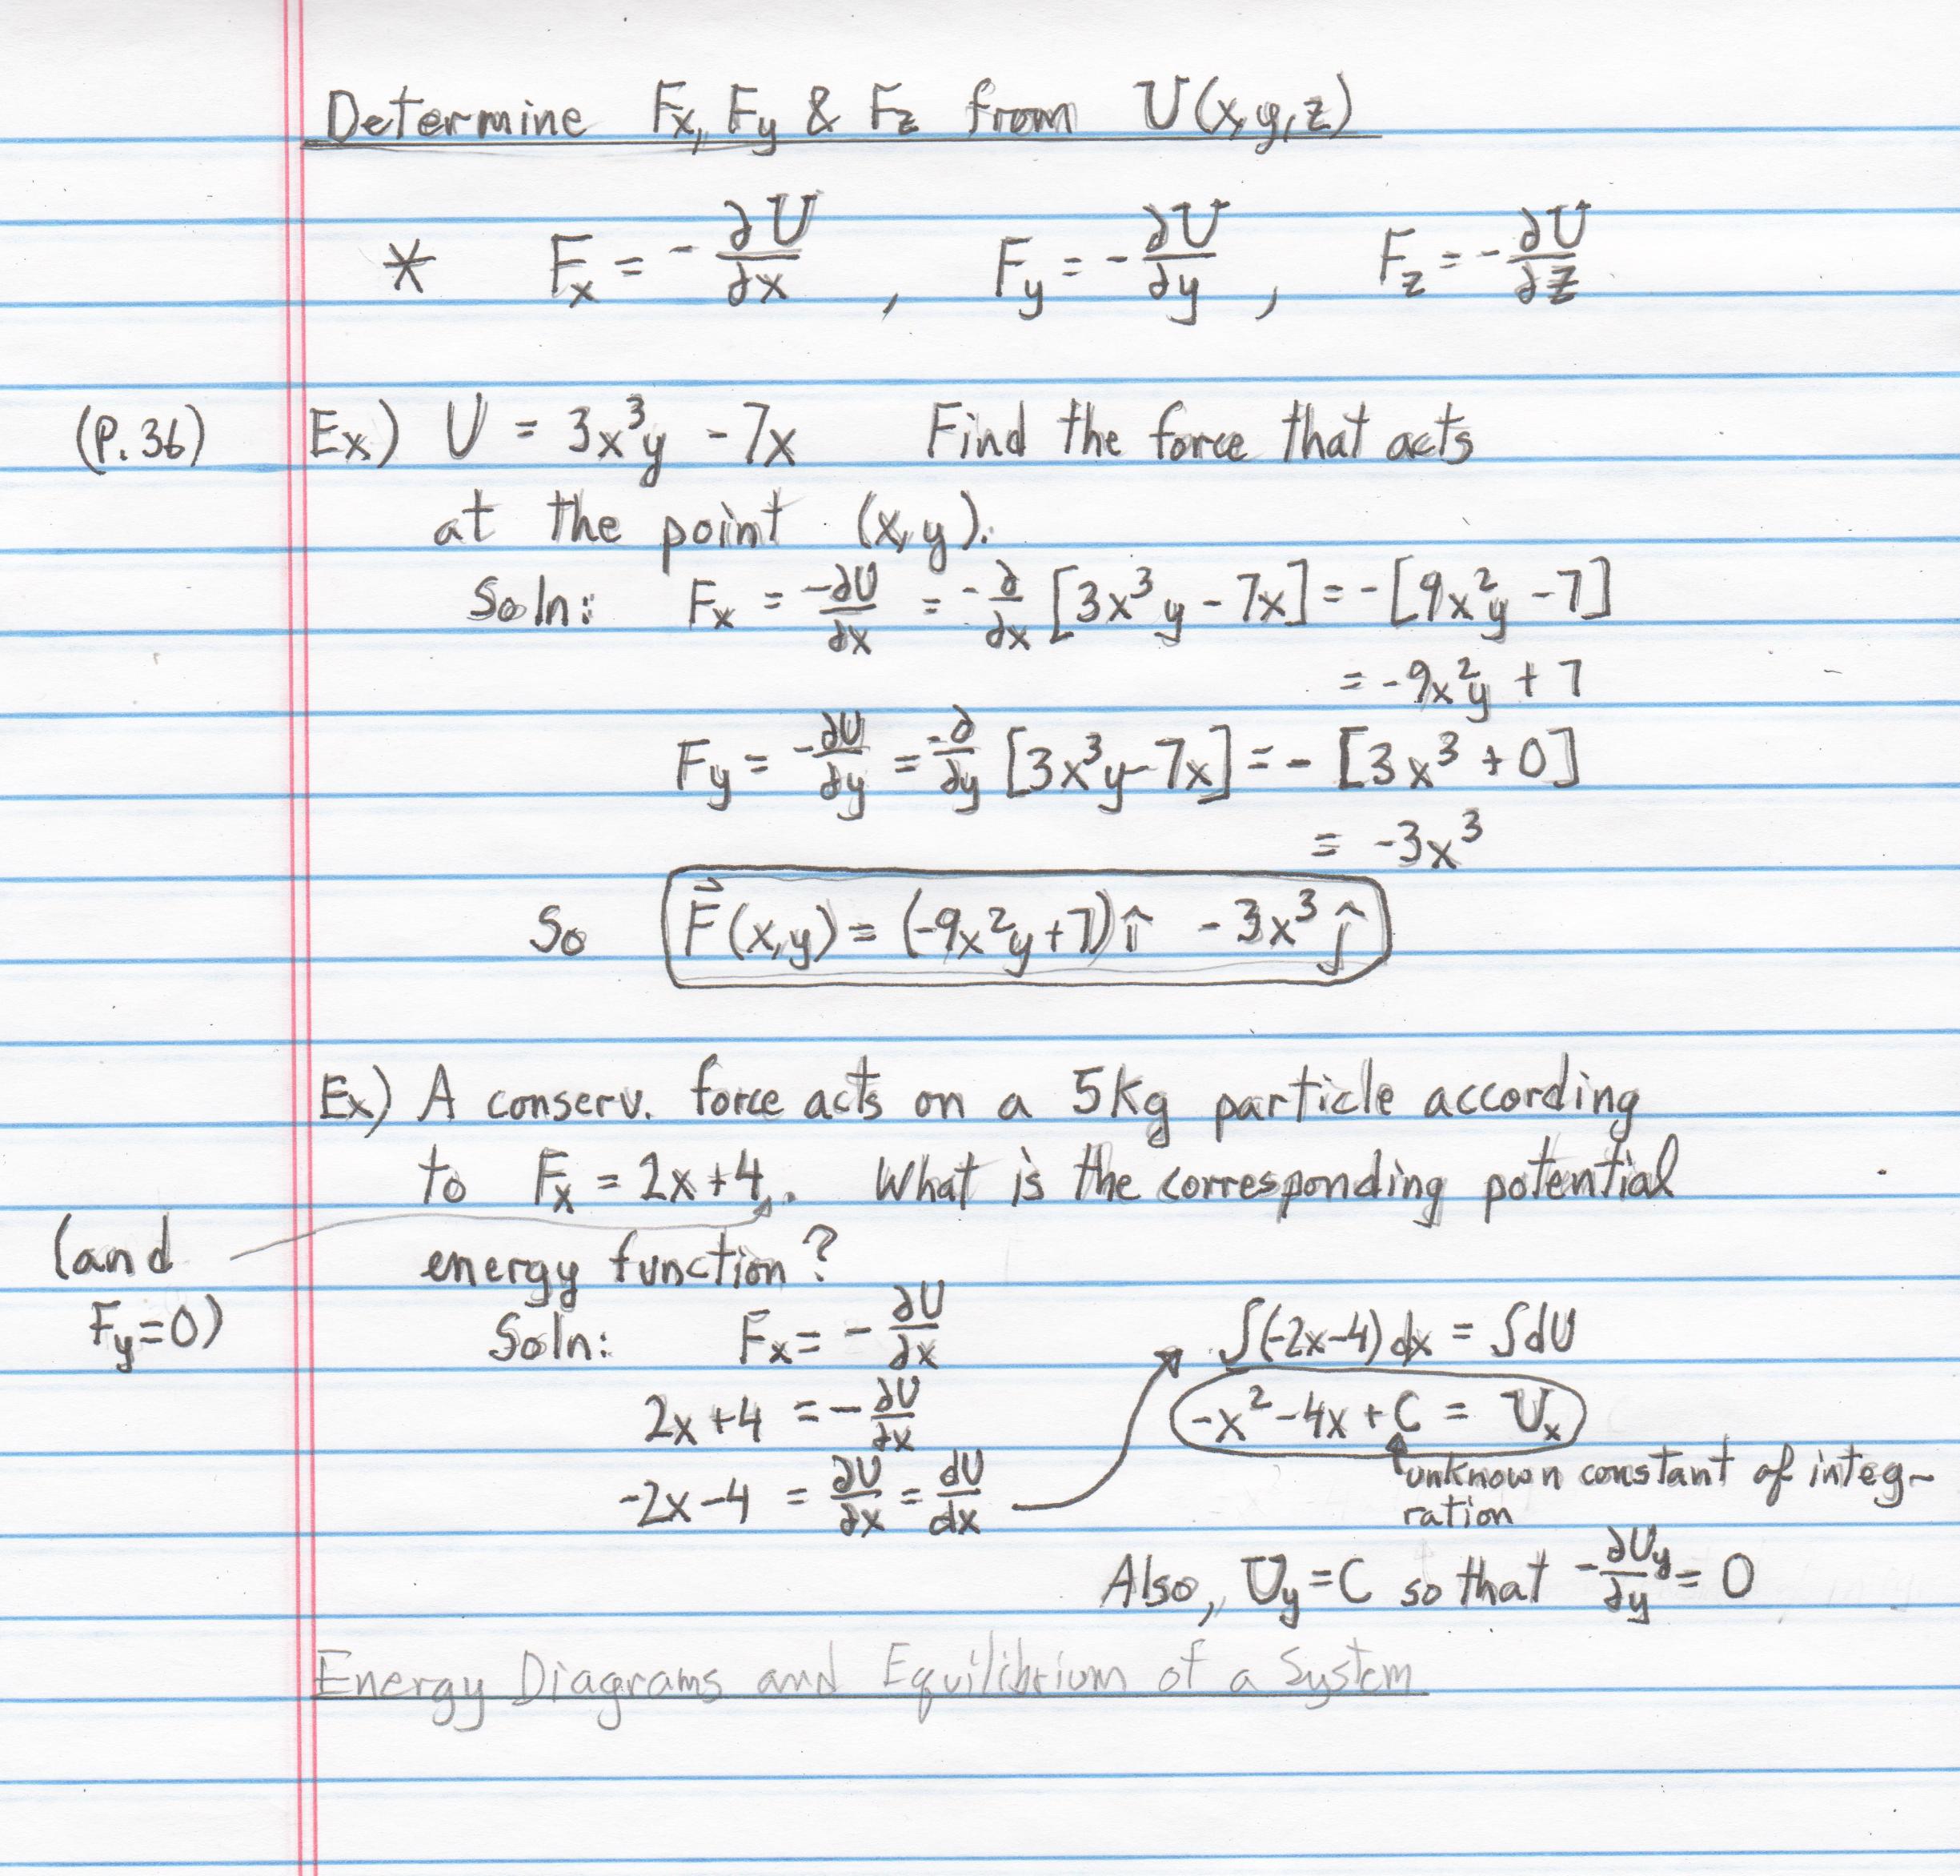 Determine Fx, Fy & Fz from U(x,y,z)
* Fx = -∂U/∂x , Fy = -∂U/∂y , Fz = -∂U/∂z
(P.36) Ex) U = 3x³y - 7x Find the force that acts
at the point (x,y).
Soln: Fx = -∂U/∂x = -∂/∂x [3x³y - 7x] = -[9x²y - 7]
= -9x²y + 7
Fy = -∂U/∂y = -∂/∂y [3x³y-7x] = - [3x³ + 0]
= -3x³
So F⃗(x,y) = (-9x²y+7)î - 3x³ ĵ
Ex) A conserv. force acts on a 5kg particle according
to Fx = 2x+4. What is the corresponding potential
(and
Fy=0)
energy function?
Soln: Fx = -∂U/∂x
2x+4 = -∂U/∂x
-2x-4 = ∂U/∂x = dU/dx
∫(-2x-4) dx = ∫dU
-x²-4x+C = Ux
unknown constant of integ-
ration
Also, Uy=C so that -∂Uy/∂y = 0
Energy Diagrams and Equilibrium of a System